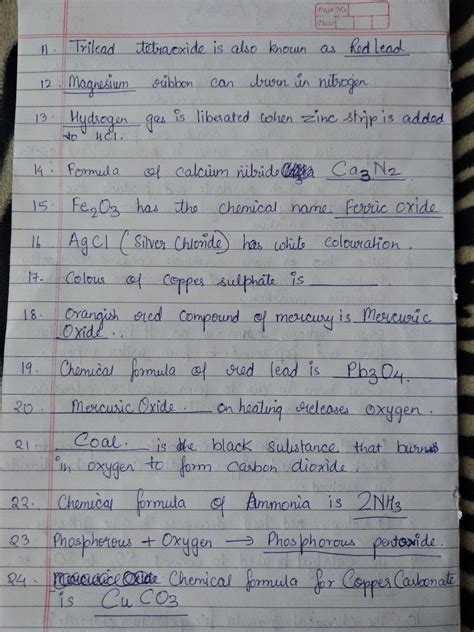 Page No.
Date
11. Trilead tetraoxide is also known as Red Lead
12. Magnesium ribbon can burn in nitrogen
13. Hydrogen gas is liberated when zinc strip is added
to HCl.
14. Formula of calcium nitride Ca3N2
15. Fe2O3 has the chemical name Ferric Oxide
16 AgCl (Silver Chloride) has white colouration.
17. Colour of copper sulphate is ______
18. Orangish red compound of mercury is Mercuric
Oxide..
19. Chemical formula of red lead is Pb3O4.
20. Mercuric Oxide. on heating releases oxygen.
21. Coal. is the black substance that burns
in oxygen to form carbon dioxide.
22. Chemical formula of Ammonia is 2NH3
23 Phosphorous + Oxygen → Phosphorous pentoxide.
24. Chemical formula for Copper Carbonate
is CuCO3